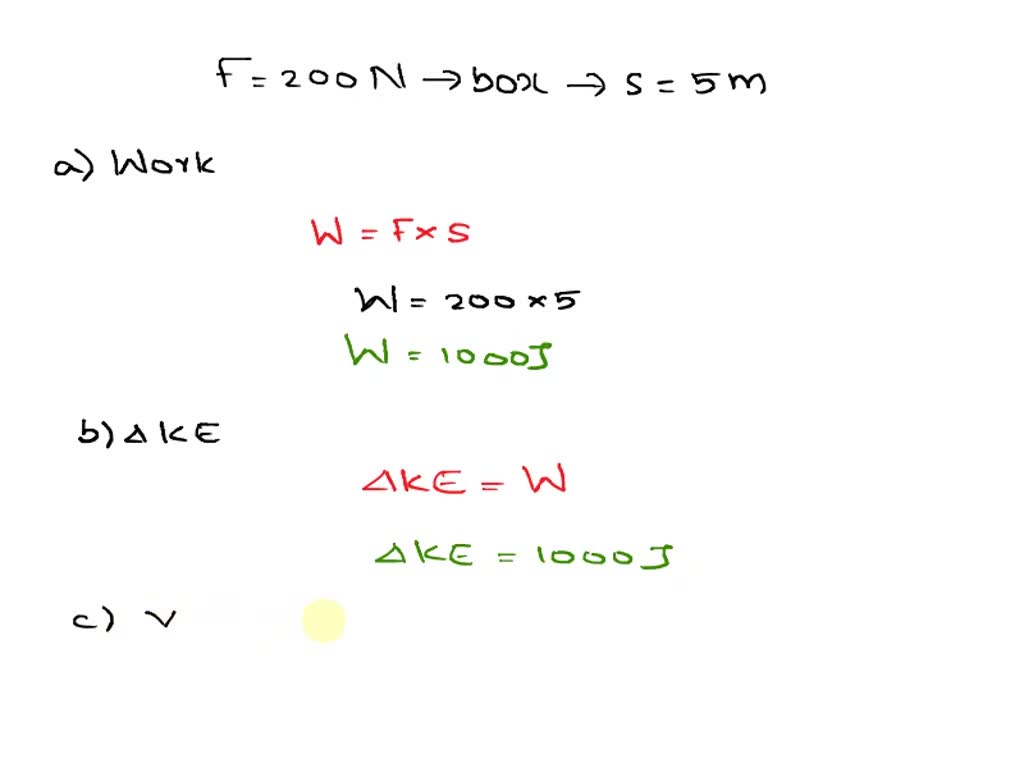 F = 200 N → box → s = 5 m
a) Work
W = F × s
W = 200 × 5
W = 1000J
b) Δ KE
ΔKE = W
ΔKE = 1000J
c) v